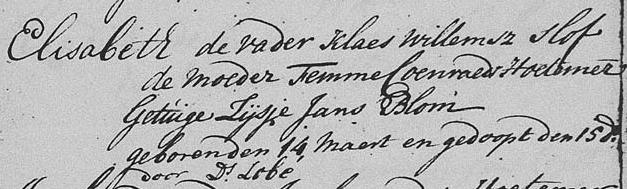 Elisabeth de vader Klaes Willemsz Slof
de moeder Femme Coenraeds Hoetemer
Getuige Lijsje Jans Blom
geboren den 14 Maert en gedoopt den 15 d.
door Ds Lobé